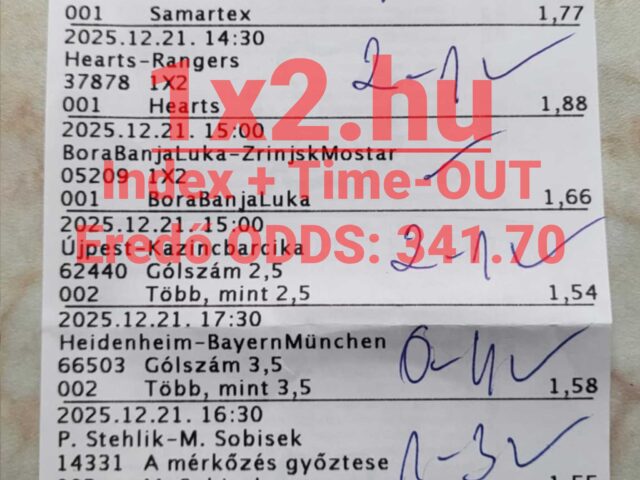 001 Samartex 1,77
2025.12.21. 14:30
Hearts-Rangers
37878 1X2
2-1
001 Hearts 1,88
1x2.hu
2025.12.21. 15:00
BoraBanjaLuka-ZrinjskMostar
05209 1X2
Index + Time-OUT
001 BoraBanjaLuka 1,66
2025.12.21. 15:00
Eredő ODDS: 341.70
Újpest-Kazincbarcika
2-1
62440 Gólszám 2,5
002 Több, mint 2,5 1,54
2025.12.21. 17:30
Heidenheim-BayernMünchen
66503 Gólszám 3,5
0-4
002 Több, mint 3,5 1,58
2025.12.21. 16:30
P. Stehlik-M. Sobisek
14331 A mérkőzés győztese